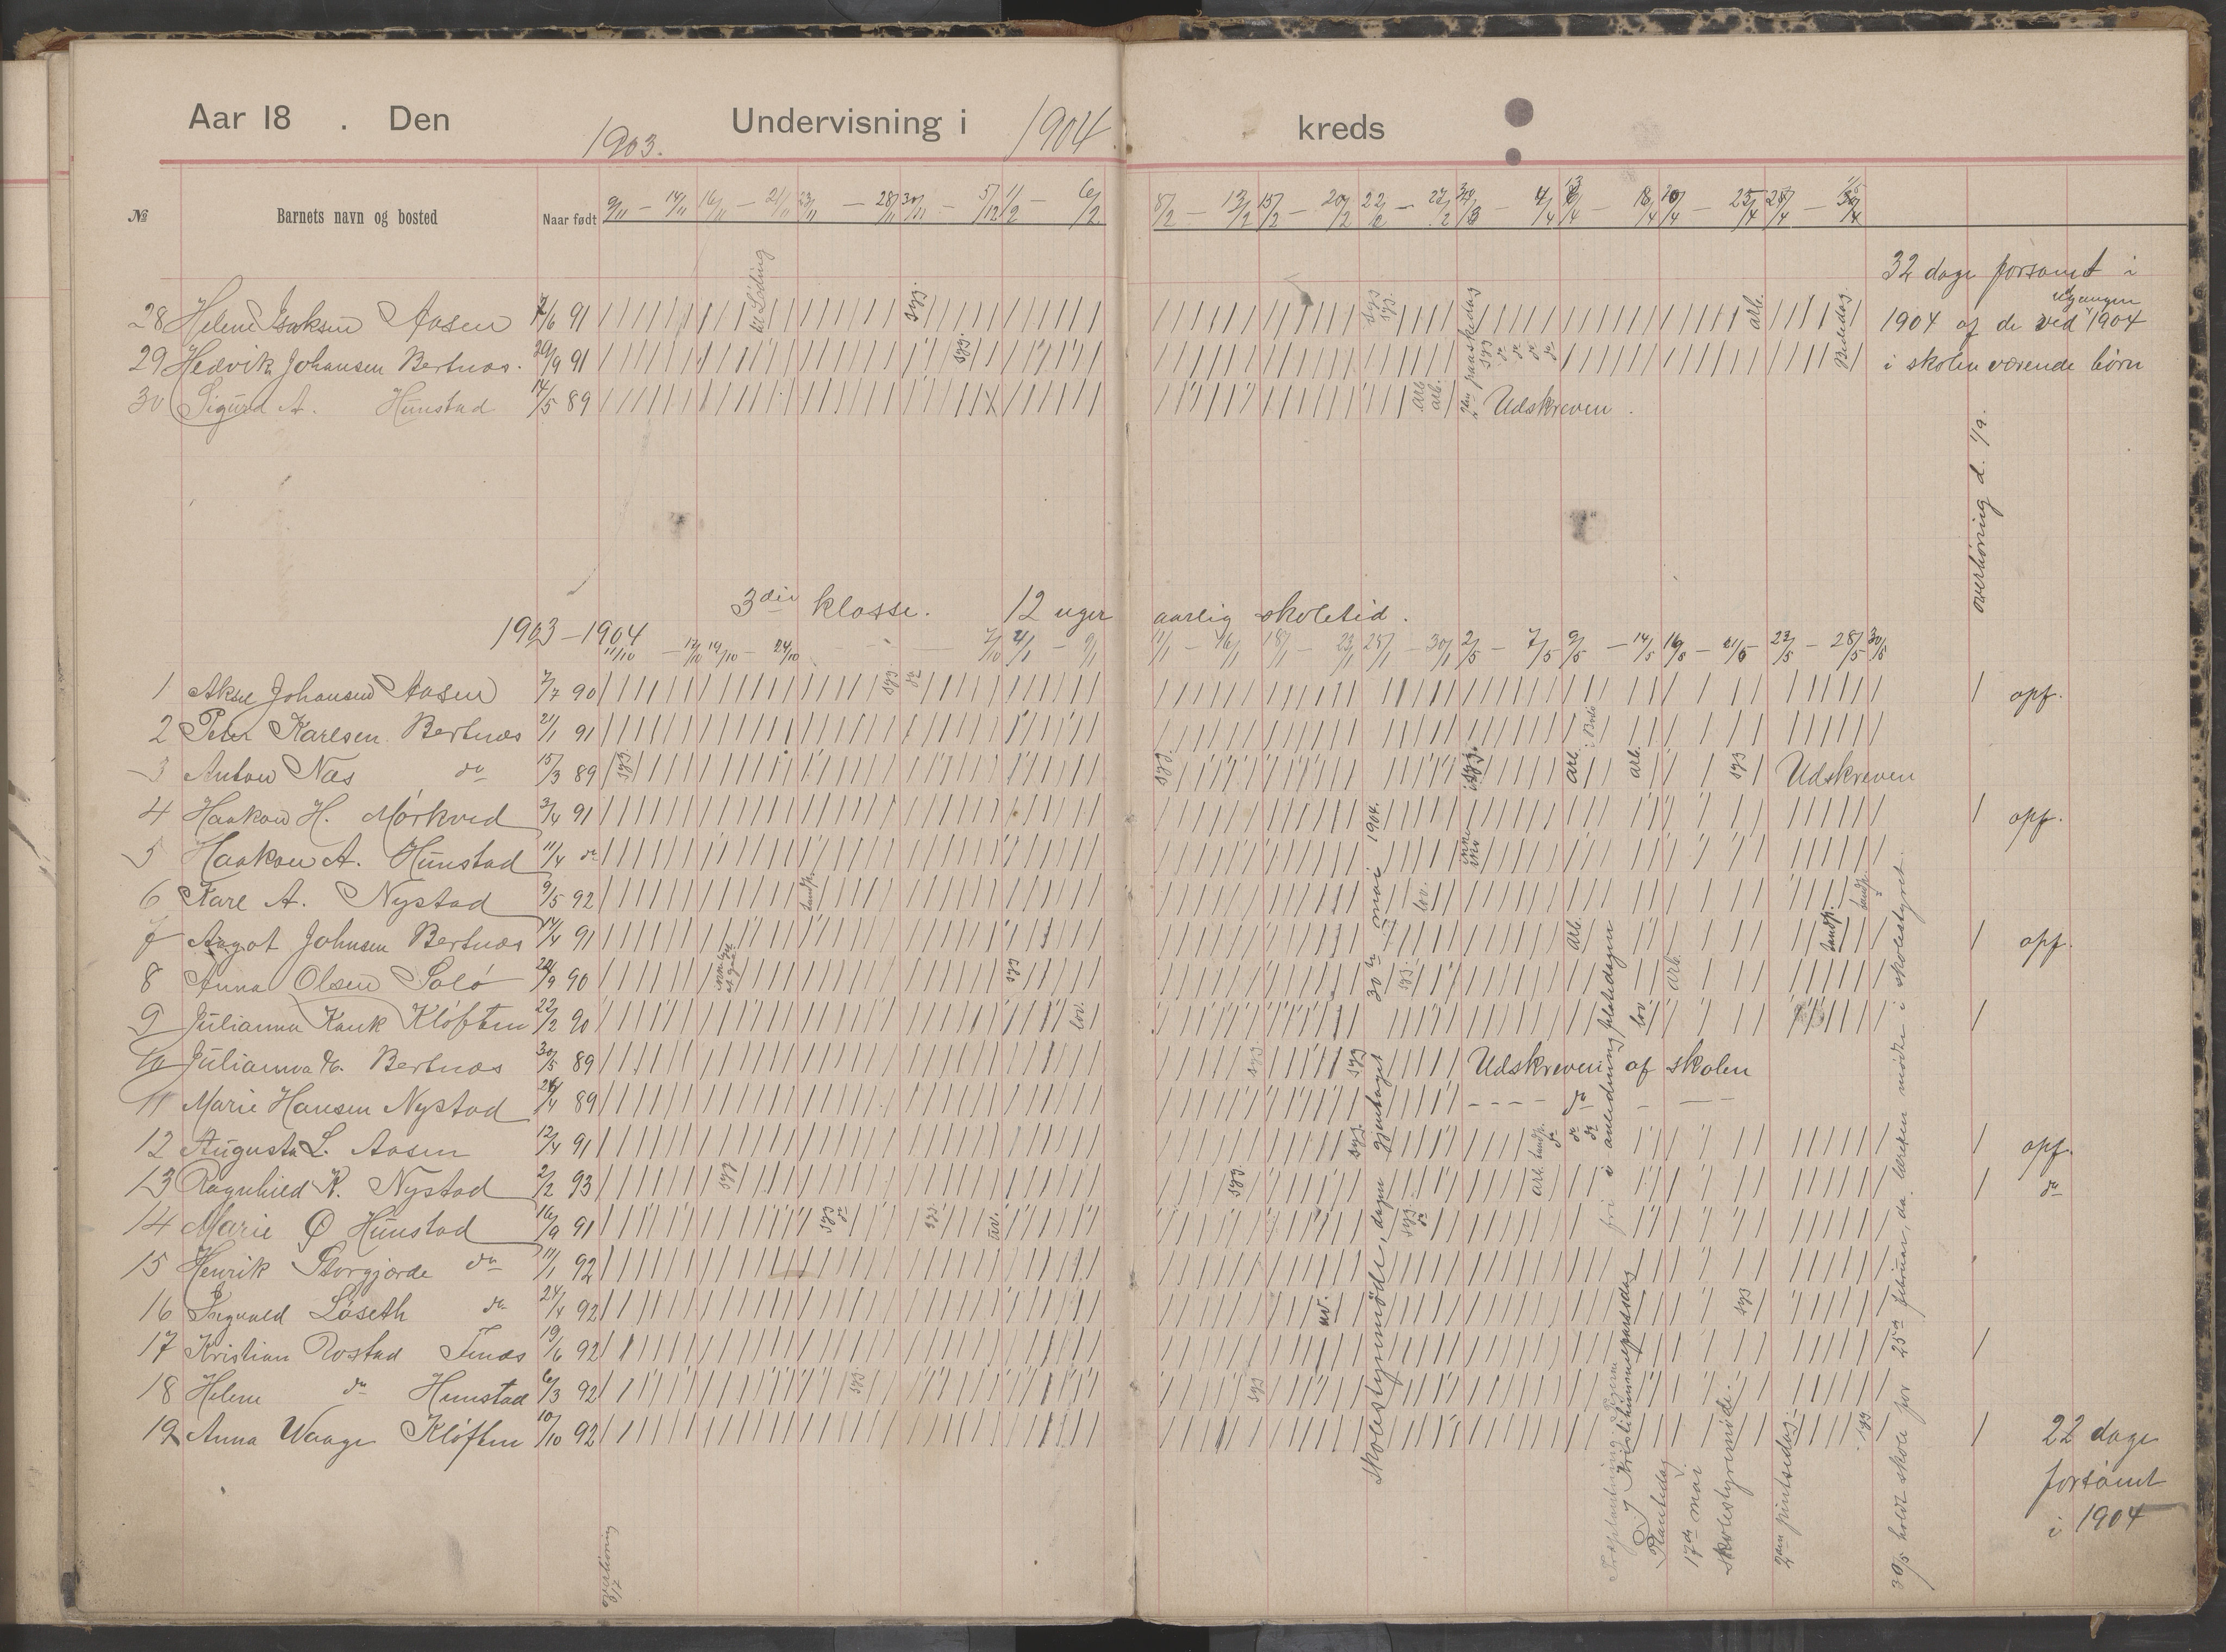 Aar 18 . Den 1903. Undervisning i 1904 kreds
№ Barnets navn og bosted Naar født 9/11 – 14/11 16/11 – 21/11 23/11 – 28/11 30/11 – 5/12 1/2 – 6/2 8/2 – 13/2 15/2 – 20/2 22/2 – 27/2
32 dage forsømt i
28 Helene Isaksen Aasen /6 91 til Løding syg. syg syg. arb. 1904 af de ved udgangen 1904
29 Hedvik Johansen Bertnæs. 29/9 91 syg. 2den paaskedag syg do do do do Bededag i skolen værende børn
30 Sigurd A. Hunstad 14/5 89 arb arb. Udskreven.
overhøring d.
3die klasse. 12 uger aarlig skoletid.
1903–1904 19/10 – 24/10 11/1 – 16/1 18/1 – 23/1 25/1 – 30/1 2/5 – 7/5 9/5 – 14/5 23/5 – 28/5 30/5
1 Aksel Johansen Aasen 7/7 90 syg. do opf.
2 Peter Karlsen Bertnæs 21/1 91 i Bodø
3 Anton Næs do 15/3 89 syg. syg. syg. arb. arb. syg Udskreven
4 Haakon H. Mørkved 3/4 91 opf.
5 Haakon A. Hunstad 11/4 do
6 Karl A. Nystad 9/5 92 tandp. lov. tandp.
7 Aagot Johnsen Bertnæs 14/4 91 arb. tandp. opf.
8 Anna Olsen Solø /9 90 syg syg. arb.
9 Julianna Hauk Kløften 22/2 90 lov. lov.
10 Julianna H. Bertnæs 30/5 89 syg. syg Udskreven af skolen
11 Marie Hansen Nystad /4 89 – – – – do – – –
12 Augusta L. Aasen 12/4 91 syg. tandp. do do do opf.
13 Ragnhild K. Nystad 2/2 93 syg syg. arb. do
14 Marie Ø Hunstad 16/9 91 syg do syg. uv. syg. do
15 Henrik Storgjorde do 11/1 92
16 Sigvald Løseth do 24/4 92 uv. syg
17 Kristian Rostad Tunæs 19/6 92
18 Helene do Hunstad 6/3 92 syg syg
19 Anna Waage Kløften 10/10 92 syg
22 dage
forsømt
i 1904
30te mai 1904.
skolestyrmøde, dagen gjentaget
fri i anledning plantedagen
Kristihimmelfartsdag
Plantedag
17de mai
skolestyremøde.
2den pintsedag.
30/5 holdt skole for 25de februar, da læreren mødte i skolestyret